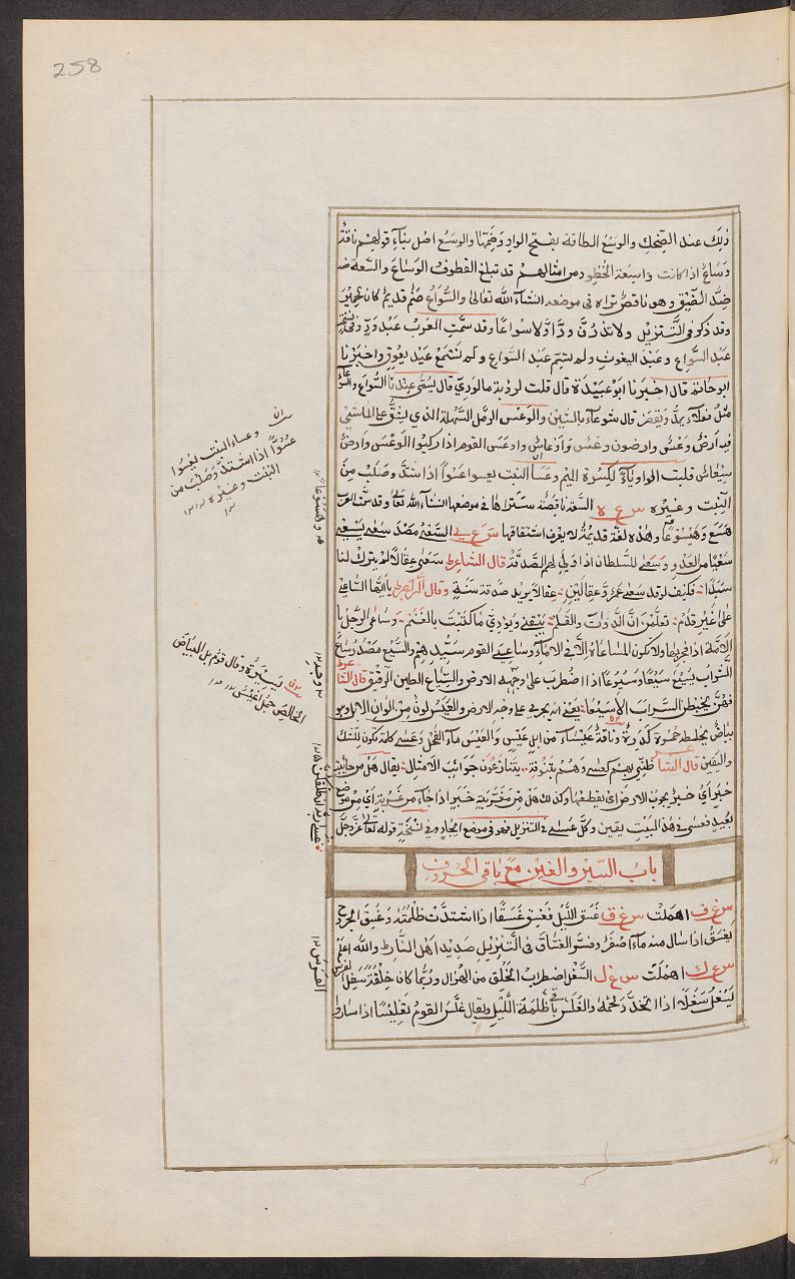 258
ذلك عند الضحك والوسع الطاقة بفتح الواو وضمها والوسع اصل بناء قولهم ناقة
وساع اذا كانت واسعة الخطو ومن امثالهم قد تبلغ القطوف الوساع والسعة ضد
ضد الضيق وهو ناقص تراه فى موضعه انشاء الله تعالى والسواع صنم قديم كان لحمير
وقد ذكر فى التنزيل ولا تذرن ودا ولا سواعا وقد سمت العرب عبد ود
عبد السواع وعبد اليغوث ولم يسم عبد السواع ولم نسمع عبد يعوق واخبرنا
ابو حاتم قال اخبرنا ابو عبيدة قال قلت لروبة ما الودى قال يسمى عندنا السواع
مثل فعلاء يمد ويقصر قال سوعاء بالسين والوعس الرمل السهلة الذى يشق على الماشى
فيه ارض وعس وارضون وعس واوعاس واوعس القوم اذا ركبوا الوعس وارض
ميعاس قلبت الواو ياء لكسرة الميم وعسا النبت يعسو اعسوا اذا اشتد وصلب من
النبت وغيره س ع ه السعة ناقصة ستراها فى موضعها انشاء الله تعالى وقد سمت العرب
هسع وهيسوعا وهذه لغة قديمة لا يعرف اشتقاقها س ع ي السعى مصدر سعى يسعى
سعيا من العدو وسعى للسلطان اذا ولى لهم الصدقة قال الشاعر سعى عقالا لم يترك لنا
سبدا فكيف لو قد سعى عمرو عقالين عقالا يريد صدقة سنة وقال الراجز يا ايها الساعى
على غير قدم تعلمن ان الدوات والقلم يبقى ويودى ما كتبت بالغنم وساعى الرجل
الامة اذا فجر بها ولا تكون المساعاة الا فى الاماء وساعى القوم سيدهم والسيع مصدر ساع
السراب يسيع سيعا وسيوعا اذا اضطرب على وجه الارض والسياع الطين الرقيق قال الشاعر
فهن يخبطن السراب الاسيعا يعنى انه يجرى على وجه الارض والعيس لون من الوان الابل وهو
بياض يخلطه حمرة كدرة وناقة عيساء من ابل عيس والعيس ماء الفحل وعسى كلمة تكون للشك
واليقين قال الشاعر ظنى بهم كعسى وهم بتنوفة يتنازعون جوائب الامثال يقال هل من جائبة
خبر اى خبر يجوب الارض اى يقطعها وكذلك هل من مغربة خبر اذا جاء من غربة اى من موضع
بعيد فعسى فى هذا البيت يقين وكل عسى فى التنزيل فهو فى موضع ايجاب وفى نسخة قوله تعالى عز وجل
باب السين والغين مع باقى الحروف
س غ ف اهملت س غ ق غسق الليل فغسق غسقا اذا اشتدت ظلمته وغسق الجرح
يغسق اذا سال منه ماء اصفر وفسر الغساق فى التنزيل صديد اهل النار والله اعلم
س غ ك اهملت س غ ل السغل اضطراب الخلق من الهزال وربما كان خلقة سغل الفرس
يسغل سغلا اذا تخدد لحمه والغلس باقى ظلمة الليل ويقال غلس القوم تغليسا اذا ساروا
وعساء النبت يعسوا
عسوا اذا اشتد وصلب من
النبت وغيره
وهيسوعا
وجه
وقال قوم بل البياض
الخالص جمل اعيس
الفرس